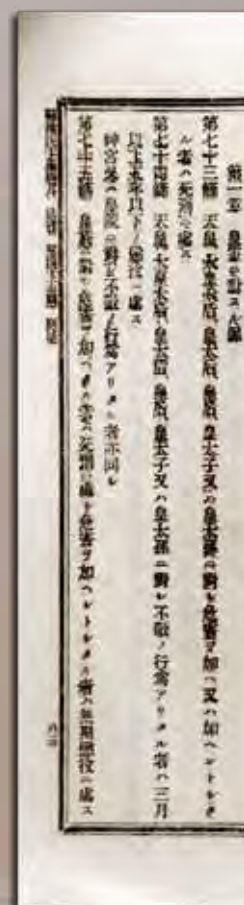 第一章 皇室ニ對スル罪
第七十三條 天皇、太皇太后、皇太后、皇后、皇太子又ハ皇太孫ニ對シ危害ヲ加ヘ又ハ加ヘントシタ
ル者ハ死刑ニ處ス
第七十四條 天皇、太皇太后、皇太后、皇后、皇太子又ハ皇太孫ニ對シ不敬ノ行爲アリタル者ハ三月
以上五年以下ノ懲役ニ處ス
神宮又ハ皇陵ニ對シ不敬ノ行爲アリタル者亦同シ
第七十五條 皇族ニ對シ危害ヲ加ヘタル者ハ死刑ニ處シ危害ヲ加ヘントシタル者ハ無期懲役ニ處ス